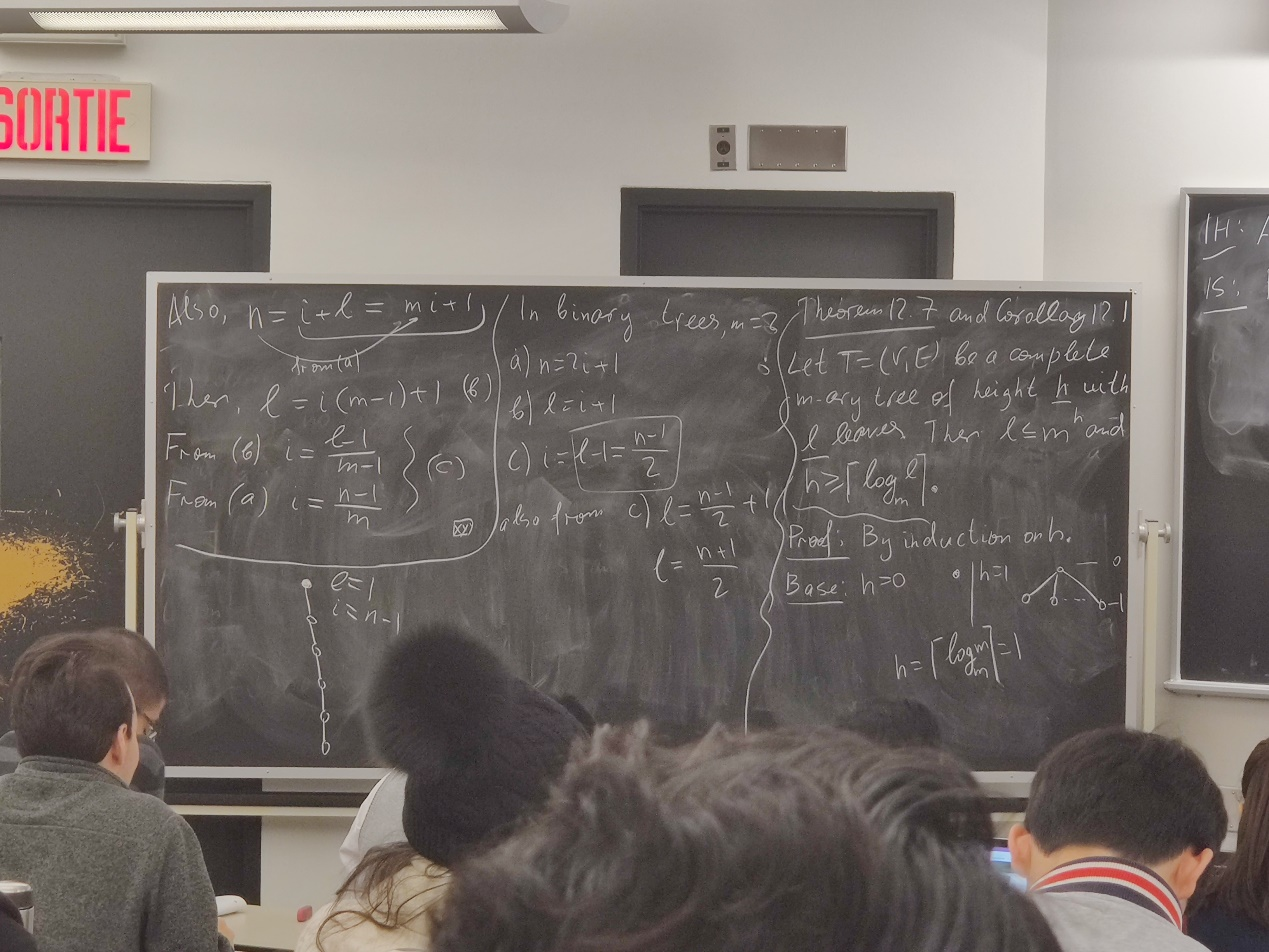 SORTIE
Also, n = i + l = mi + 1
from (a)
Then, l = i(m-1)+1 (b)
From (b) i = (l-1)/(m-1)
From (a) i = (n-1)/m } (c)
l = 1
i = n-1
In binary trees, m=2:
a) n = 2i+1
b) l = i+1
c) i = l-1 = (n-1)/2
also from c) l = (n-1)/2 + 1
l = (n+1)/2
Theorem 12.7 and Corollary 12.1
Let T=(V,E) be a complete
m-ary tree of height h with
l leaves. Then l ≤ m^h and
h ≥ ⌈log_m l⌉.
Proof: By induction on h.
Base: h=0 h=1
0
1
h = ⌈log_m m⌉ = 1
IH: A
IS: